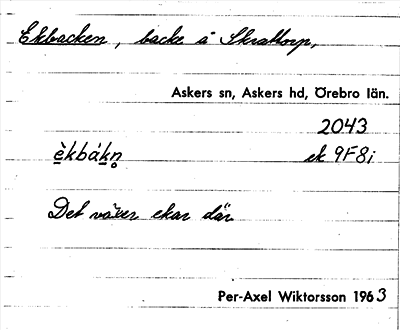 Ekbacken, backe å Skrattorp,
Askers sn, Askers hd, Örebro län.
2043
èkbákn̥ ek 9F8i
Det växer ekar där
Per-Axel Wiktorsson 1963